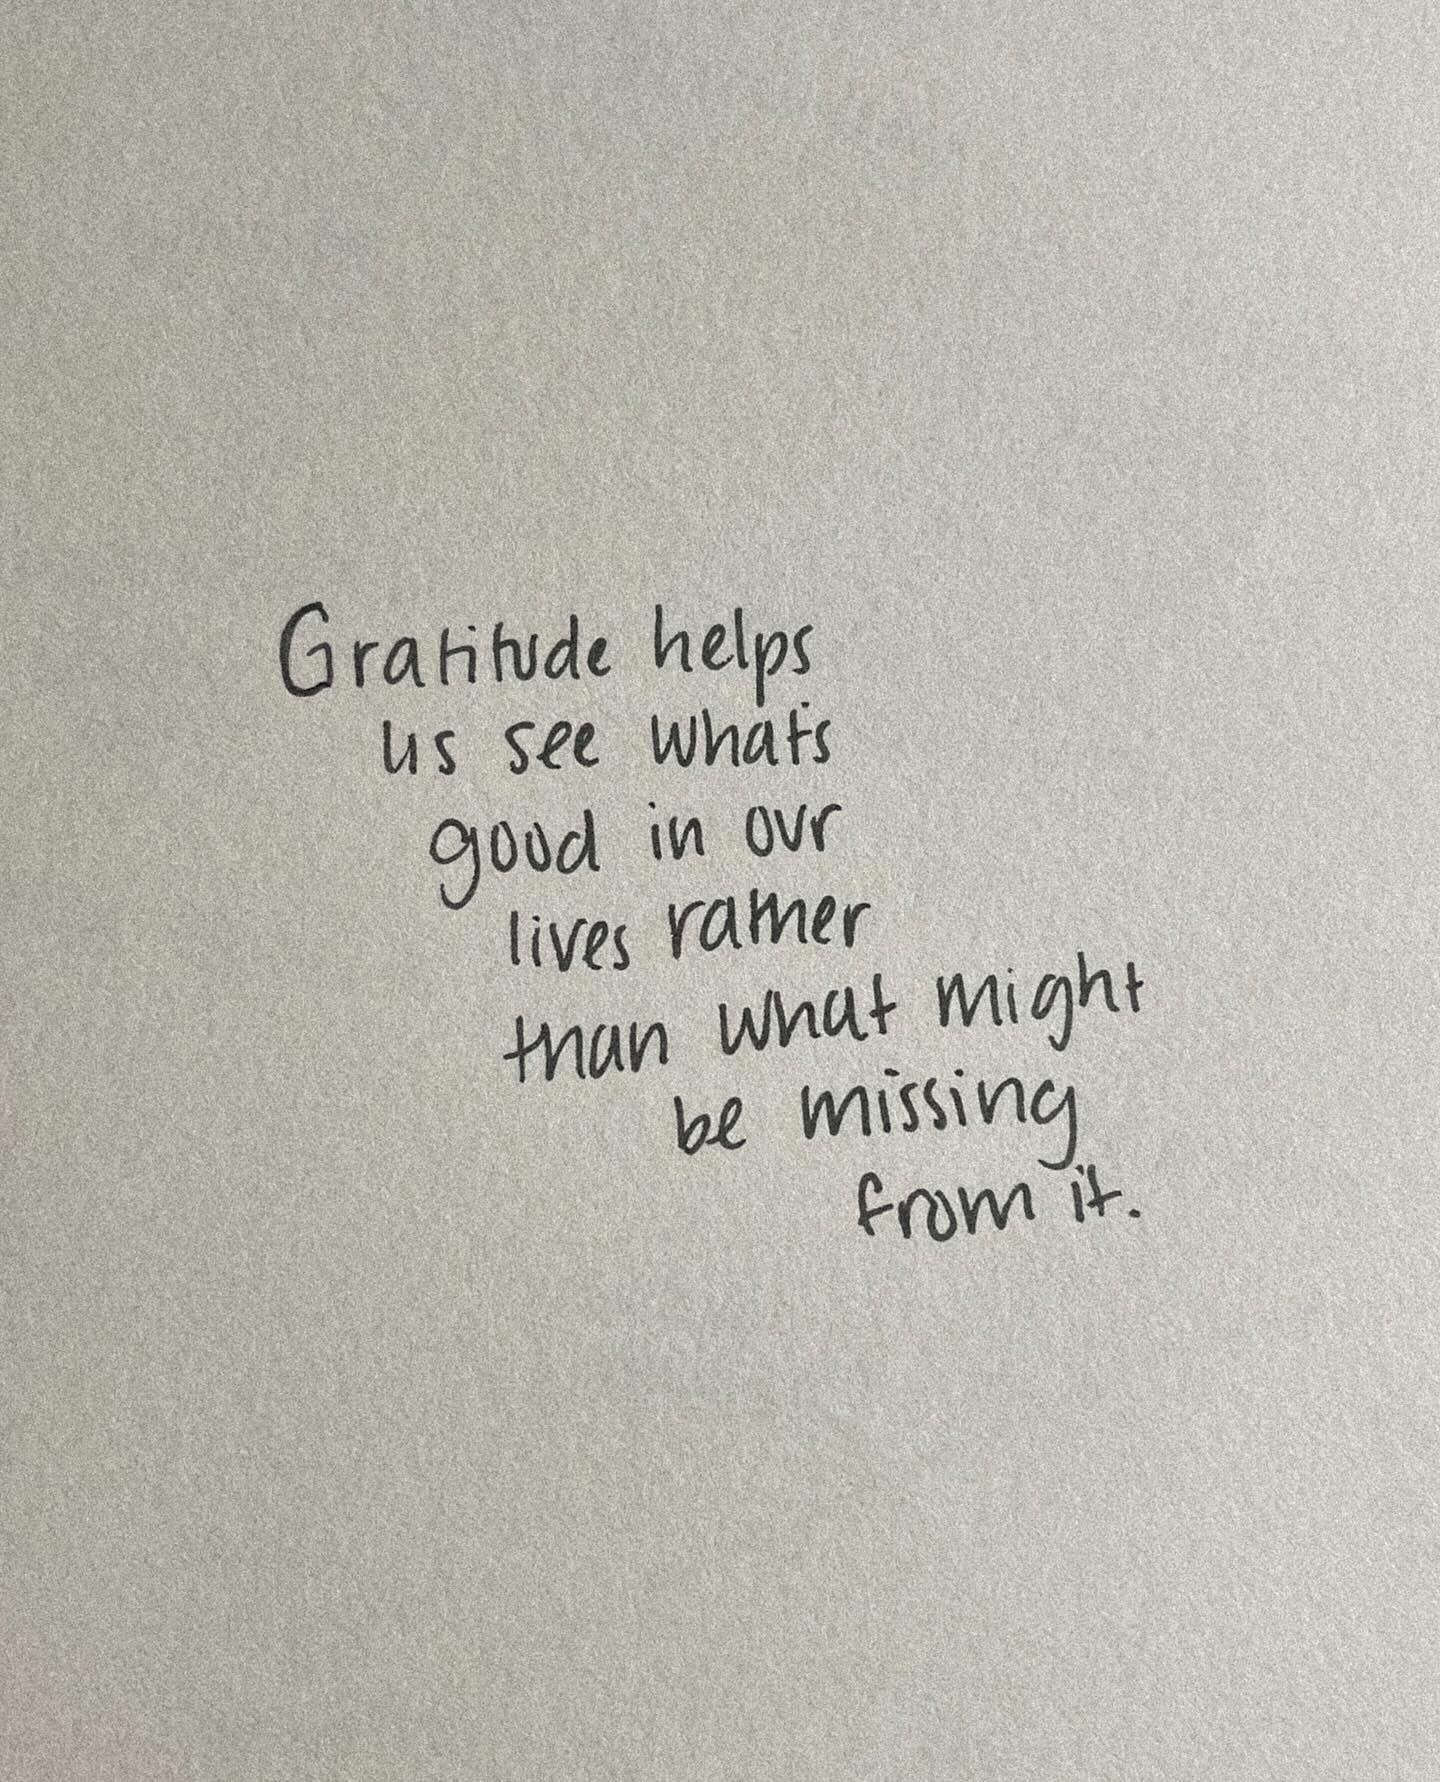 Gratitude helps
us see what's
good in our
lives rather
than what might
be missing
from it.